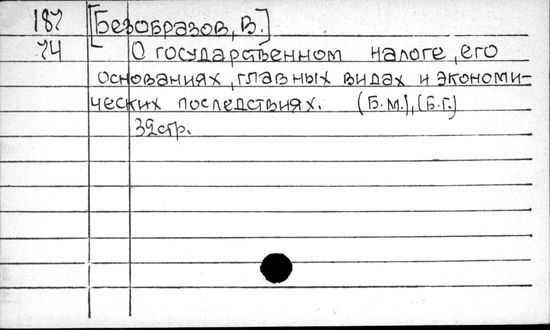 187 [Безобразов, В.]
74 О государственном налоге, его
основаниях, главных видах и экономи-
ческих последствиях. (Б.м.), (Б.г.)
32стр.